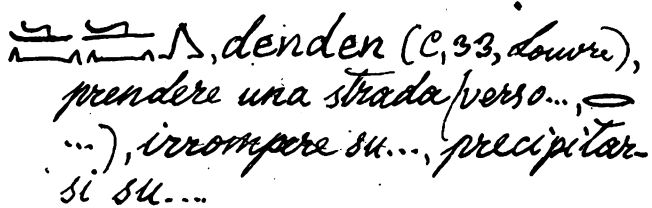 𓂧𓈖𓂧𓈖𓂻, denden (C, 33, Louvre),
prendere una strada (verso..., 𓂋
...), irrompere su..., precipitar-
si su....